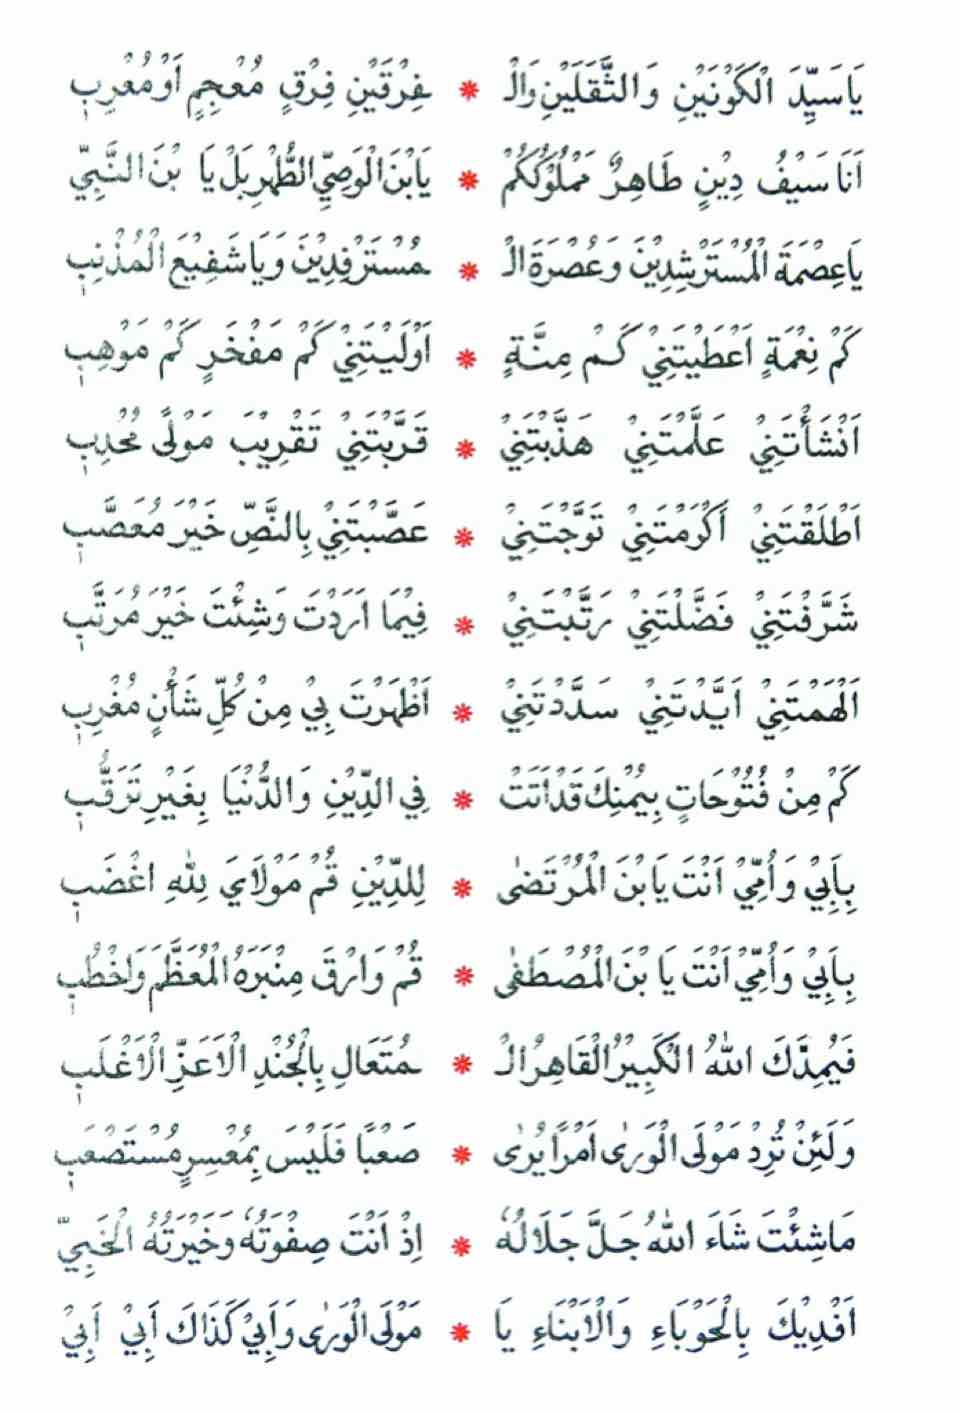 يَا سَيِّدَ الْكَوْنَيْنِ وَالثَّقَلَيْنِ وَالْـ * ـفِرْقَيْنِ فِرْقٍ مُعْجِمٍ اَوْ مُعْرِبٖ
اَنَا سَيْفُ دِيْنٍ طَاهِرٌ مَمْلُوْكُكُمْ * يَابْنَ الْوَصِيِّ الطُّهْرِ بَلْ يَا بْنَ النَّبِيّ
يَا عِصْمَةَ الْمُسْتَرْشِدِيْنَ وَعُصْرَةَ الْـ * ـمُسْتَرْفِدِيْنَ وَيَا شَفِيْعَ الْمُذْنِبٖ
كَمْ نِعْمَةٍ اَعْطَيْتَنِيْ كَمْ مِنَّةٍ * اَوْلَيْتَنِيْ كَمْ مَفْخَرٍ كَمْ مَوْهِبٖ
اَنْشَأْتَنِيْ عَلَّمْتَنِيْ هَذَّبْتَنِيْ * قَرَّبْتَنِيْ تَقْرِيْبَ مَوْلًى مُحْدِبٖ
اَطْلَقْتَنِيْ اَكْرَمْتَنِيْ تَوَّجْتَنِيْ * عَصَّبْتَنِيْ بِالنَّصِّ خَيْرَ مُعَصَّبٖ
شَرَّفْتَنِيْ فَضَّلْتَنِيْ رَتَّبْتَنِيْ * فِيْمَا اَرَدْتَ وَشِئْتَ خَيْرَ مُرَتَّبٖ
اَلْهَمْتَنِيْ اَيَّدْتَنِيْ سَدَّدْتَنِيْ * اَظْهَرْتَ بِيْ مِنْ كُلِّ شَأْنٍ مُغْرِبٖ
كَمْ مِنْ فُتُوْحَاتٍ بِيُمْنِكَ قَدْ اَتَتْ * فِي الدِّيْنِ وَالدُّنْيَا بِغَيْرِ تَرَقُّبٖ
بِاَبِيْ وَاُمِّيْ اَنْتَ يَا بْنَ الْمُرْتَضٰى * لِلدِّيْنِ قُمْ مَوْلَايَ لِلّٰهِ اغْضَبٖ
بِاَبِيْ وَاُمِّيْ اَنْتَ يَا بْنَ الْمُصْطَفٰى * قُمْ وَارْقَ مِنْبَرَهُ الْمُعَظَّمَ وَاخْطُبٖ
فَيُمِدَّكَ اللهُ الْكَبِيْرُ الْقَاهِرُ الْـ * ـمُتَعَالِ بِالْجُنْدِ الْاَعَزِّ الْاَغْلَبٖ
وَلَئِنْ تُرِدْ مَوْلَى الْوَرٰى اَمْرًا يُرٰى * صَعْبًا فَلَيْسَ بِمُعْسِرٍ مُسْتَصْعَبٖ
مَا شِئْتَ شَاءَ اللهُ جَلَّ جَلَالُهٗ * اِذْ اَنْتَ صِفْوَتُهٗ وَخَيْرَتُهُ الْخَبِيّ
اَفْدِيْكَ بِالْحَوْبَاءِ وَالْاَبْنَاءِ يَا * مَوْلَى الْوَرٰى وَاَبِيْ كَذَاكَ اَبِيْ اَبِيْ